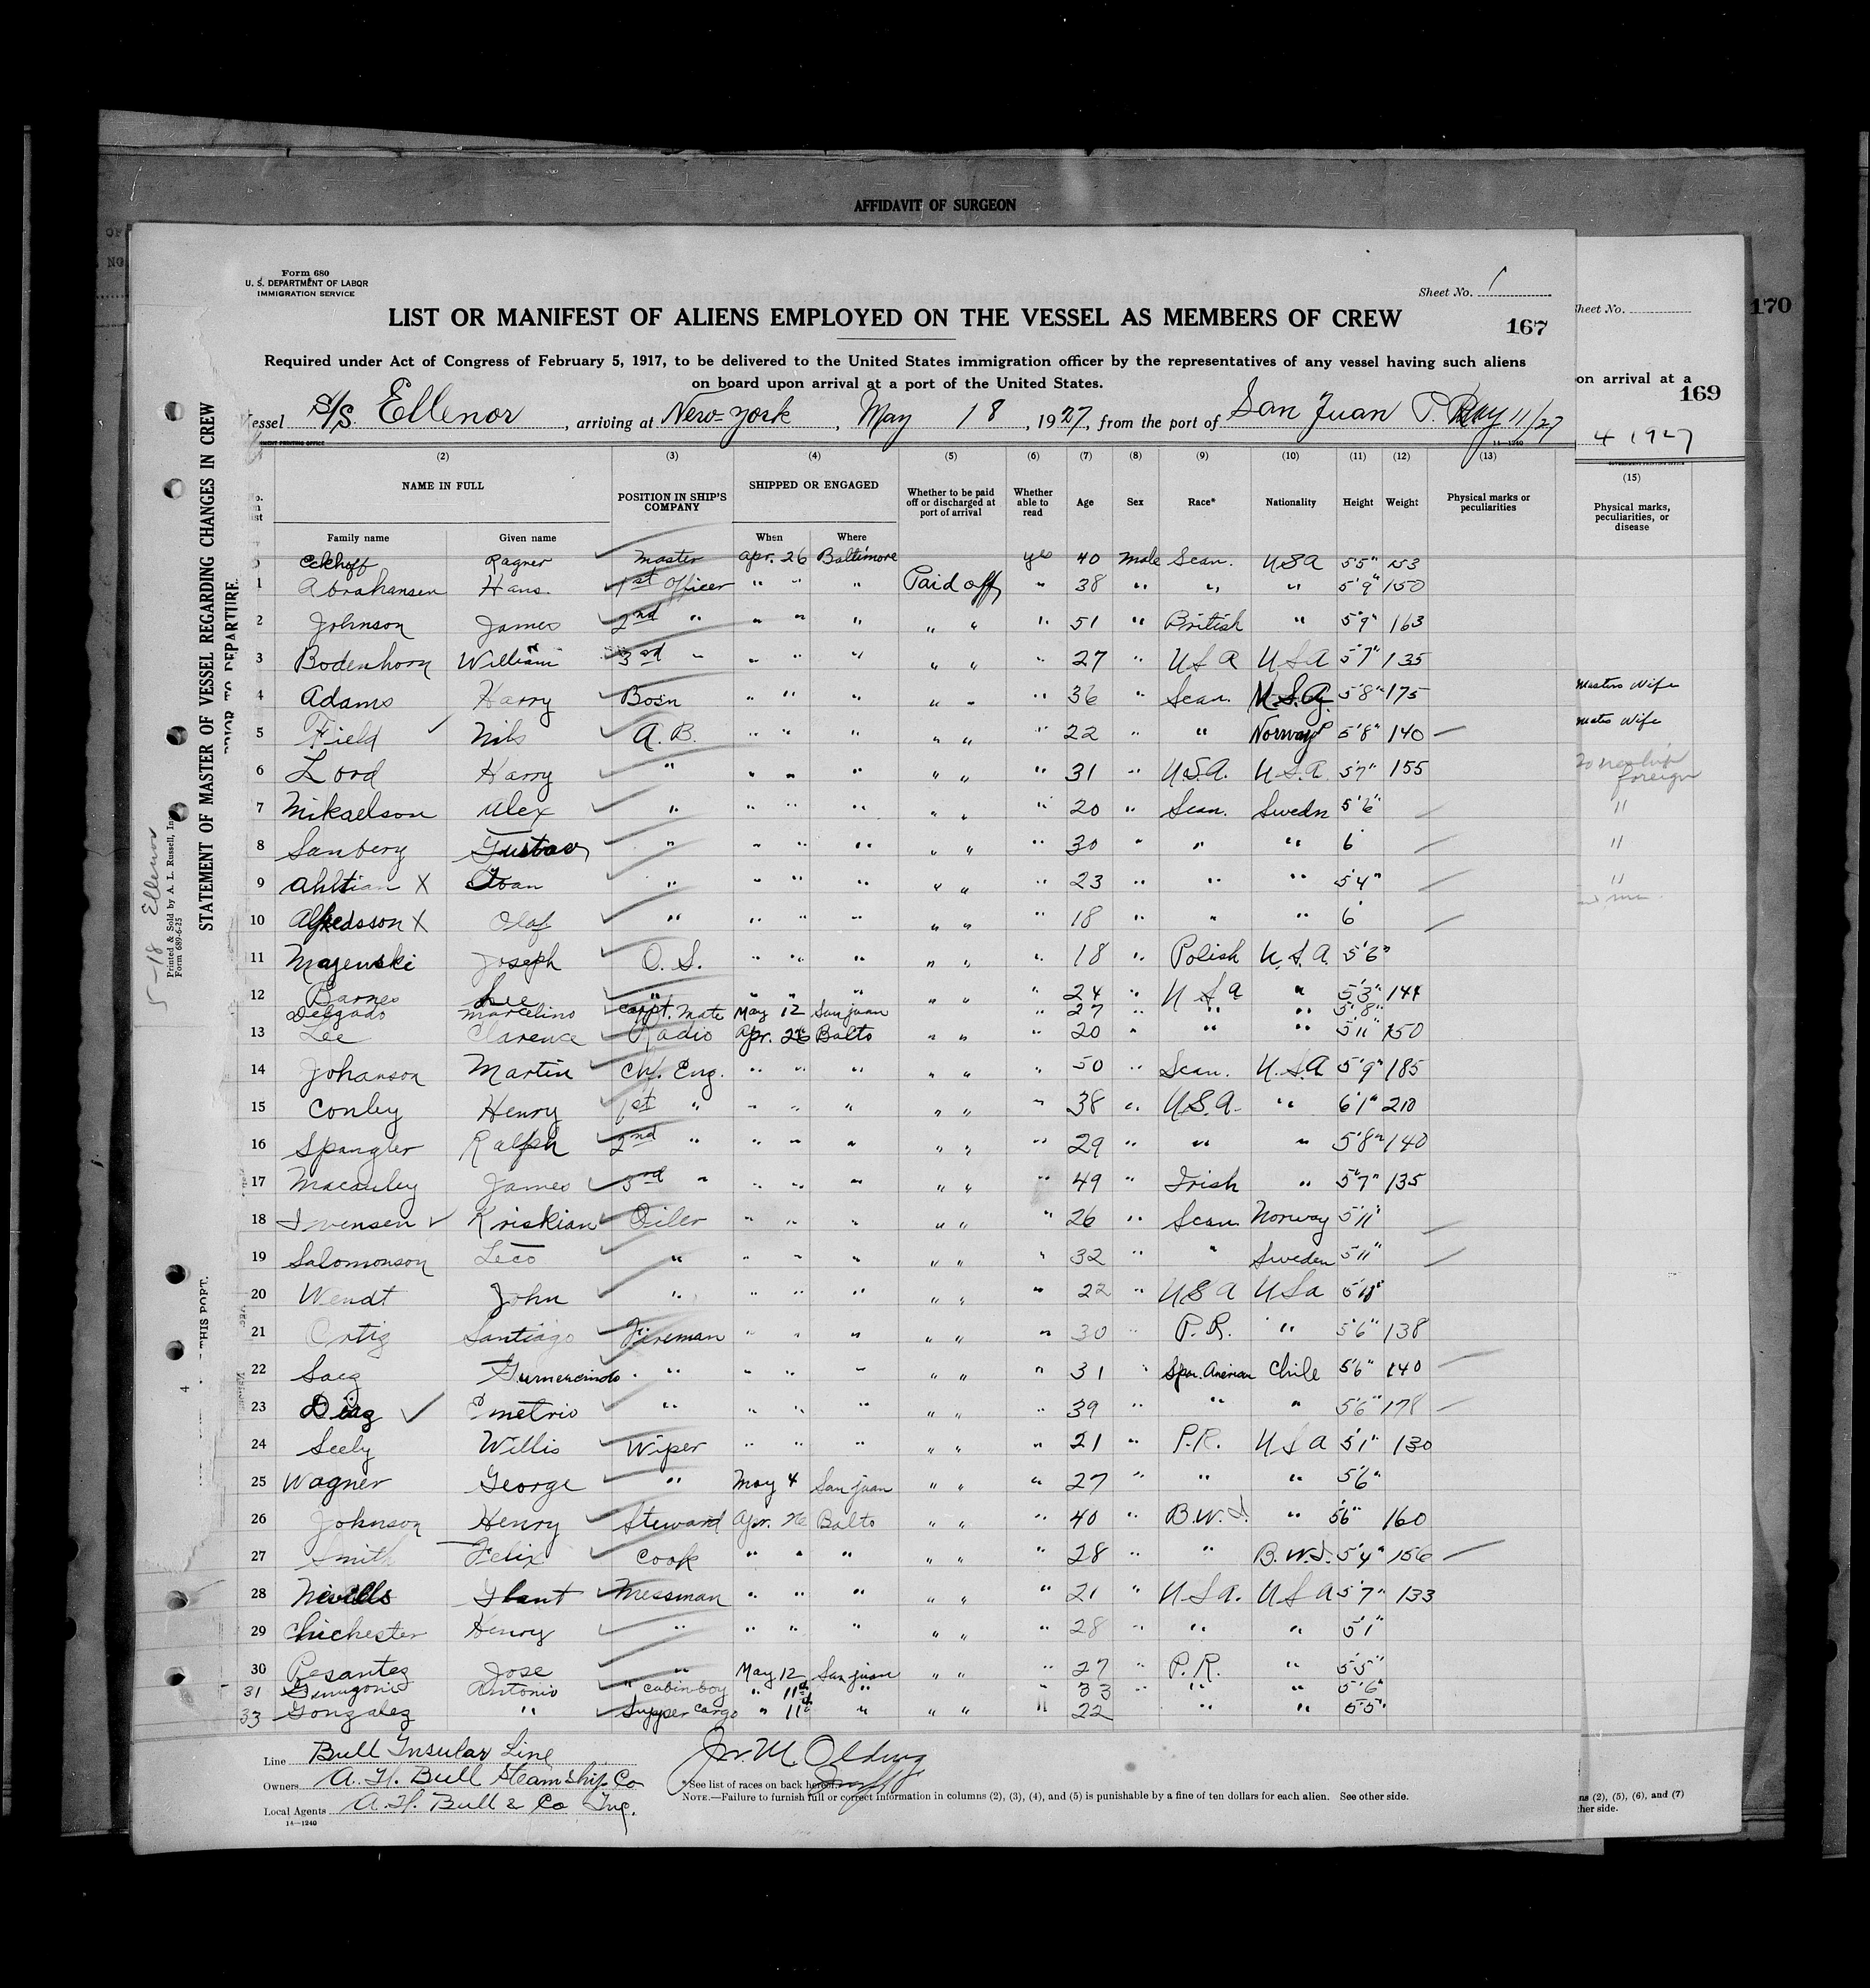 AFFIDAVIT OF SURGEON
Form 680
U. S. DEPARTMENT OF LABOR
IMMIGRATION SERVICE
Sheet No. 1
LIST OR MANIFEST OF ALIENS EMPLOYED ON THE VESSEL AS MEMBERS OF CREW
167
170
Sheet No.
Required under Act of Congress of February 5, 1917, to be delivered to the United States immigration officer by the representatives of any vessel having such aliens
on board upon arrival at a port of the United States.
on arrival at a
169
Vessel S/S. Ellenor, arriving at New-York, May 18, 1927, from the port of San Juan P. May 11/27
4 1927
(2) (3) (4) (5) (6) (7) (8) (9) (10) (11) (12) (13) (15)
NAME IN FULL POSITION IN SHIP'S COMPANY SHIPPED OR ENGAGED Whether to be paid off or discharged at port of arrival Whether able to read Age Sex Race* Nationality Height Weight Physical marks or peculiarities
Physical marks, peculiarities, or disease
Family name Given name When Where
Eckhoff Ragner Master Apr. 26 Baltimore yes 40 male Scan. USA 5'5" 153
1 Abrahansen Hans. 1st Officer " " " Paid off " 38 " " " 5'9" 150
2 Johnson James 2nd " " " " " " " 51 " British " 5'9" 163
3 Bodenhorn William 3rd " " " " " " " 27 " USA USA 5'7" 135
4 Adams Harry Bosn " " " " " " 36 " Scan. U.S.A. 5'8" 175
Masters Wife
5 Field Nils A.B. " " " " " " 22 " " Norway 5'8" 140
Mates Wife
6 Lord Harry " " " " " " " 31 " U.S.A. U.S.A. 5'7" 155
foreign
7 Mikaelson Alex " " " " " " " 20 " Scan. Swedn 5'6"
8 Sanberg Gustav " " " " " " " 30 " " " 6
9 Ahltian X Ivan " " " " " " " 23 " " " 5'4"
10 Alfredsson X Olaf " " " " " " " 18 " " " 6
11 Majewski Joseph O.S. " " " " " " 18 " Polish U.S.A. 5'6"
12 Barnes Lee " " " " " " " 24 " USA " 5'3" 144
Delgado Marcelino Carpt. Mate May 12 San juan " 27 " " " 5'8"
13 Lee Clarence Radio Apr. 26 Balto " " " 20 " " " 5'11" 150
14 Johanson Martin Ch. Eng. " " " " " " 50 " Scan. U.S.A 5'9" 185
15 Conley Henry 1st " " " " " " " 38 " U.S.A. " 6'1" 210
16 Spangler Ralph 2nd " " " " " " " 29 " " " 5'8" 140
17 Macauley James 3rd " " " " " " " 49 " Irish " 5'7" 135
18 Iwensen Kriskian Oiler " " " " " " 26 " Scan. Norway 5'11"
19 Salomonson Leco " " " " " " " 32 " " Sweden 5'11"
20 Wendt John " " " " " " " 22 " USA USA 5'11"
21 Ortiz Santiago Fireman " " " " " " 30 " P.R. " 5'6" 138
22 Saez Gumercindo " " " " " " " 31 " Span. American Chile 5'6" 140
23 Diaz Emetrio " " " " " " " 39 " " " 5'6" 178
24 Seely Willis Wiper " " " " " " 21 " P.R. USA 5'1" 130
25 Wagner George " May 4 San juan " " " 27 " " " 5'6"
26 Johnson Henry Steward Apr. 26 Balto " " " 40 " B.W.I. " 5'6" 160
27 Smith Felix Cook " " " " " " 28 " " B.W.I. 5'4" 156
28 Nevills Messman " " " " " " 21 " USA. USA 5'7" 133
29 Chichester Henry " " " " " " " 28 " " " 5'1"
30 Pesantez Jose " May 12 San juan " " " 27 " P.R. " 5'5"
31 Antonio " cabin boy " 11th " " 33 " " " 5'6"
33 Gonzalez " Supper cargo " 11th " " " " 22 " " 5'5"
Line Bull Insular Line
Owners A. H. Bull Steamship Co
Local Agents A. H. Bull & Co Inc.
14—1240
*See list of races on back hereof.
NOTE.—Failure to furnish full or correct information in columns (2), (3), (4), and (5) is punishable by a fine of ten dollars for each alien. See other side.
ns (2), (5), (6), and (7)
her side.
STATEMENT OF MASTER OF VESSEL REGARDING CHANGES IN CREW
PRIOR TO DEPARTURE
THIS PORT.
5-18 Ellenor
Printed & Sold by A. L. Russell, Inc.
Form 689-6-25